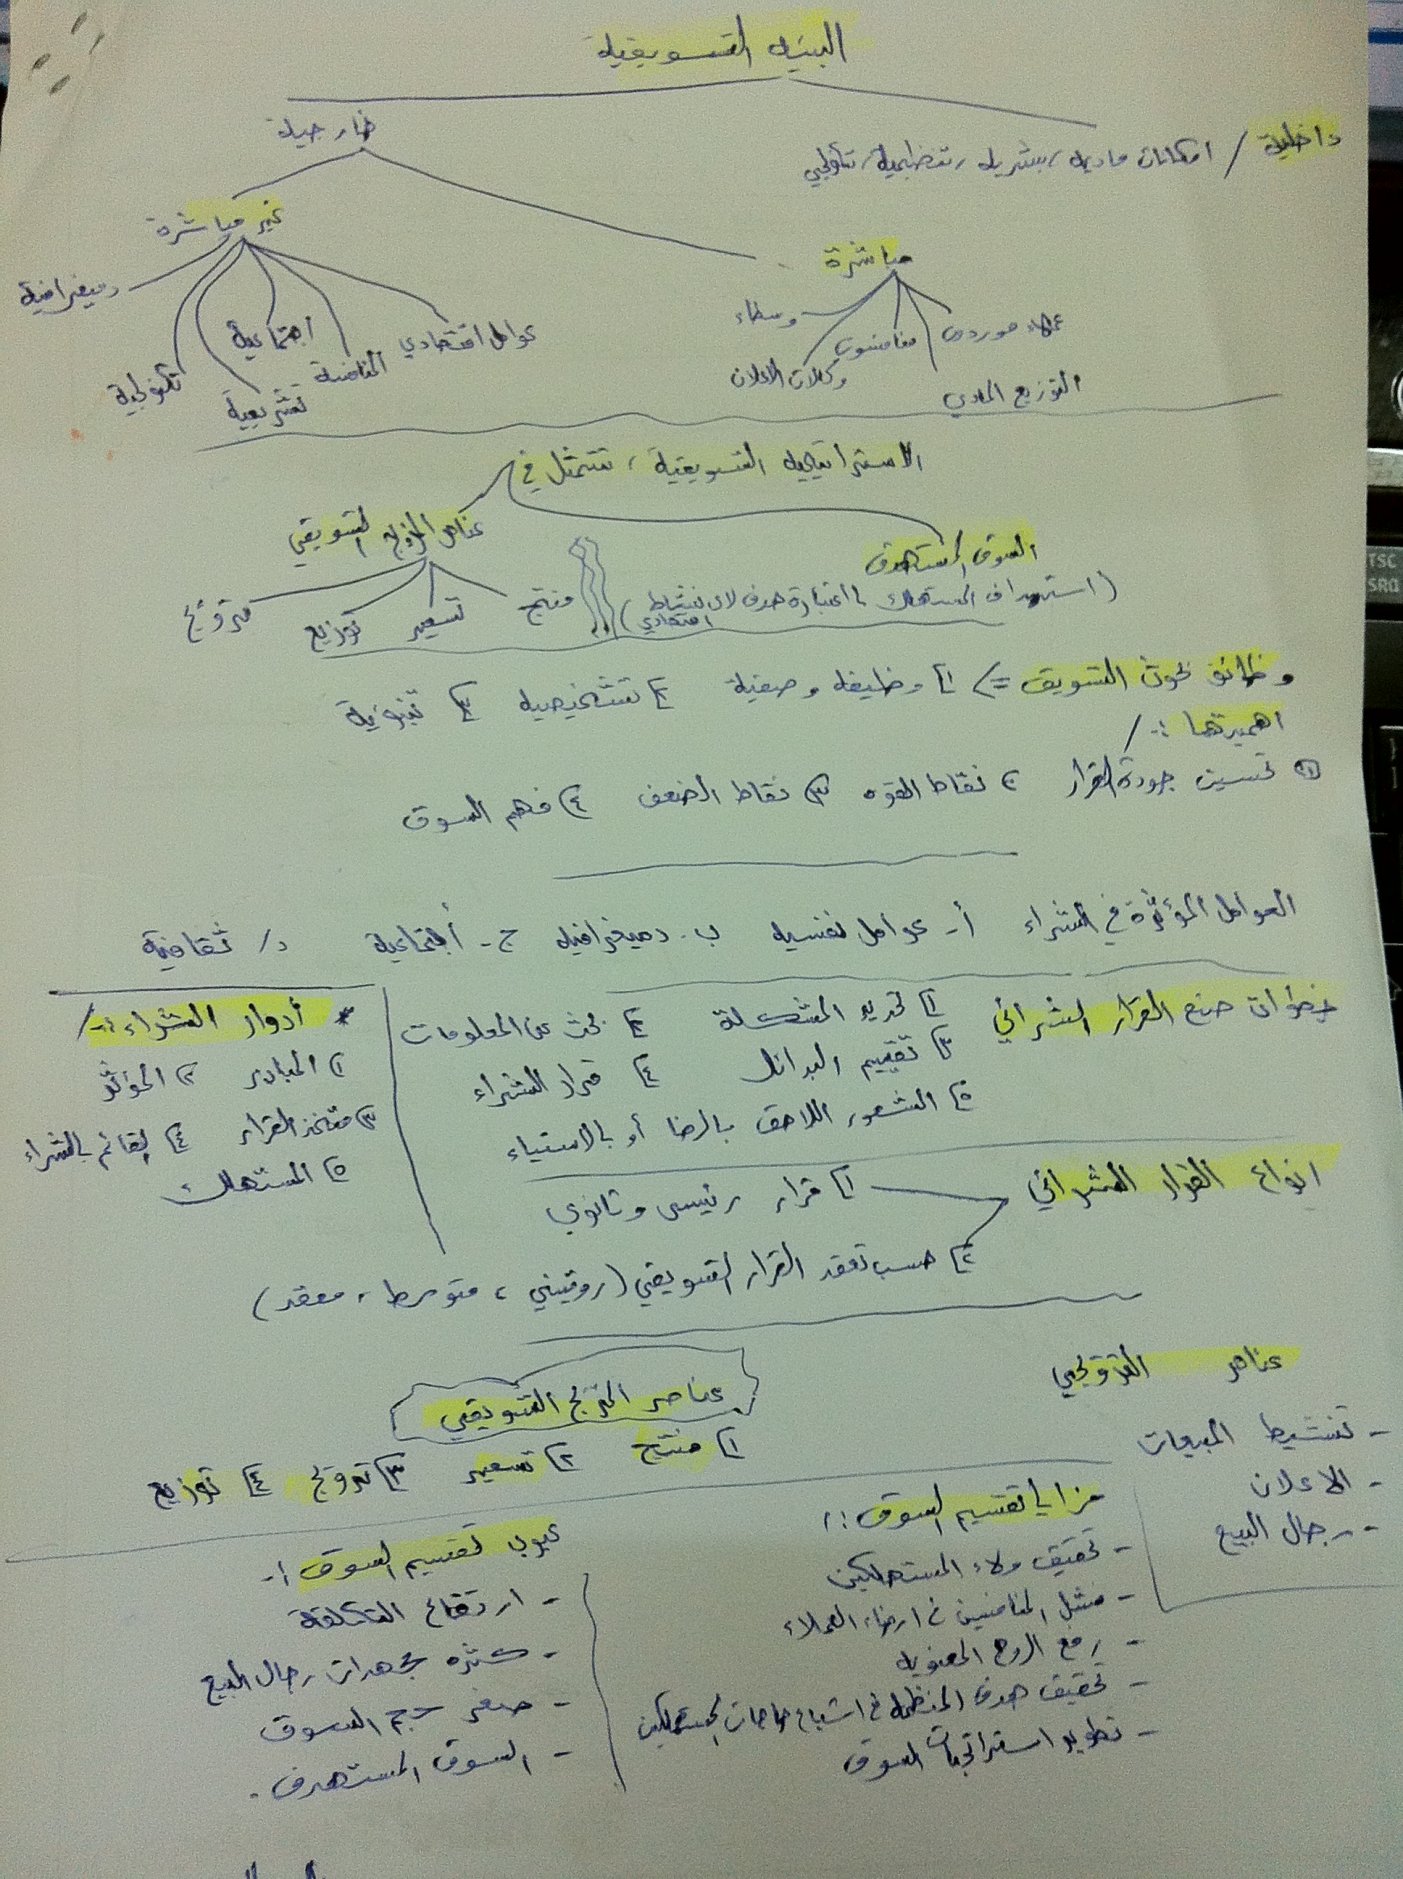 البيئه التسويقية
داخلية / امكانات ماديه، بشريه، تنظيمية، تكنولوجي
خارجية
غير مباشرة
مباشرة
عملاء موردين منافسون وسطاء
التوزيع المادي وكالات الاعلان
عوامل اقتصادي المنافسة اجتماعية تشريعية تكنولوجية ديمغرافية
الاستراتيجيه التسويقية، تتمثل في
السوق المستهدف
(استهداف المستهلك باعتبارة هدف لاي نشاط اقتصادي)
عناصر المزيج التسويقي
منتج تسعير توزيع ترويج
وظائف بحوث التسويق => ١) وظيفه وصفية ٢) تشخيصيه ٣) تنبؤية
اهميتها :- /
١) تحسين جودة القرار ٢) نقاط القوه ٣) نقاط الضعف ٤) فهم السوق
العوامل المؤثرة في الشراء أ- عوامل نفسيه ب- دميغرافيه ج- أجتماعية د/ ثقافية
خطوات صنع القرار الشرائي ١) تحديد المشكلة ٢) بحث عن المعلومات
٣) تقييم البدائل ٤) قرار الشراء
٥) الشعور اللاحق بالرضا أو بالاستياء
* أدوار الشراء :-/
١) المبادر ٢) المؤثر
٣) متخذ القرار ٤) القائم بالشراء
٥) المستهلك
انواع القرار الشرائي ١) قرار رئيسي وثانوي
٢) حسب تعقد القرار التسويقي (روتيني، متوسط، معقد)
عناصر الترويجي
- تنشيط المبيعات
- الاعلان
- رجال البيع
عناصر المزيج التسويقي
١) منتج ٢) تسعير ٣) ترويج ٤) توزيع
مزايا تقسيم السوق :/
- تحقيق ولاء المستهلكين
- المنافسين في ارضاء العملاء
- رفع الروح المعنويه
- تحقيق هدف المنظمه في اشباع حاجات المستهلكين
- تطوير استراتيجيات السوق
عيوب تقسيم السوق :-
- ارتفاع التكلفة
- كثره مجهودات رجال البيع
- صغر حجم السوق
- السوق المستهدف .